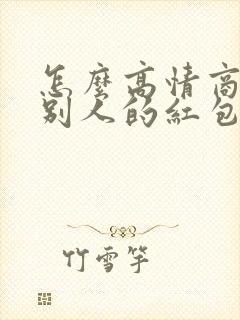 怎麼高情商
別人的紅包
竹雪芊